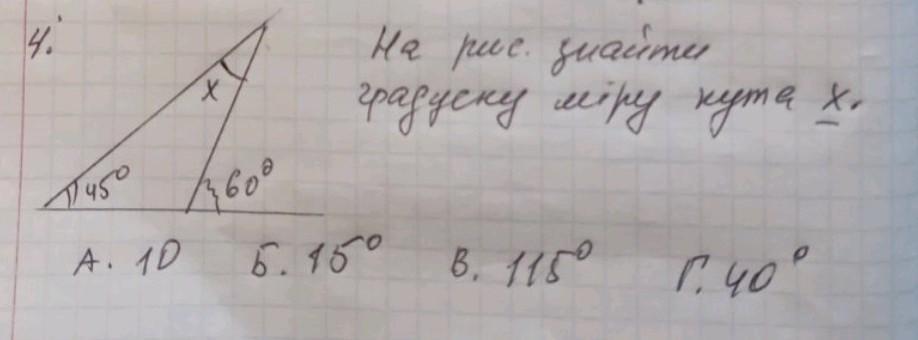 4.
На рис. знайти
градусну міру кута x.
x
45°
60°
А. 10 Б. 15° В. 115° Г. 40°